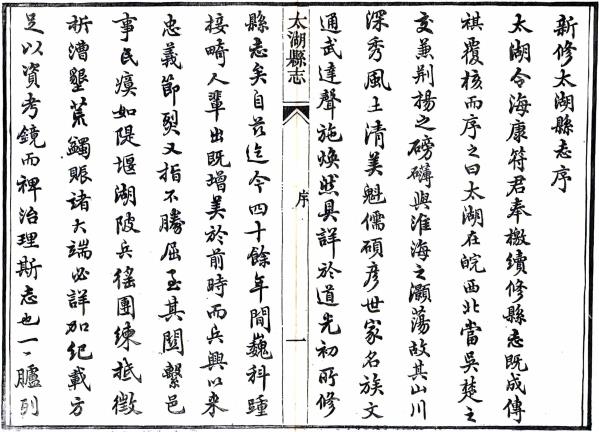 新修太湖縣志序
太湖令海康符君奉檄續修縣志既成傳
祺覆核而序之曰太湖在皖西北當吳楚之
交兼荆揚之磅礴與淮海之灝蕩故其山川
深秀風土清美魁儒碩彥世家名族文
通武達聲施煥然具詳於道光初所修
太湖縣志
序
一
縣志矣自茲迄今四十餘年間巍科踵
接畸人輩出既增美於前時而兵興以來
忠義節烈又指不勝屈至其關繫邑
事民瘼如隄堰湖陂兵徭團練抵徵
折漕墾荒蠲賑諸大端必詳加紀載方
足以資考鏡而裨治理斯志也一一臚列